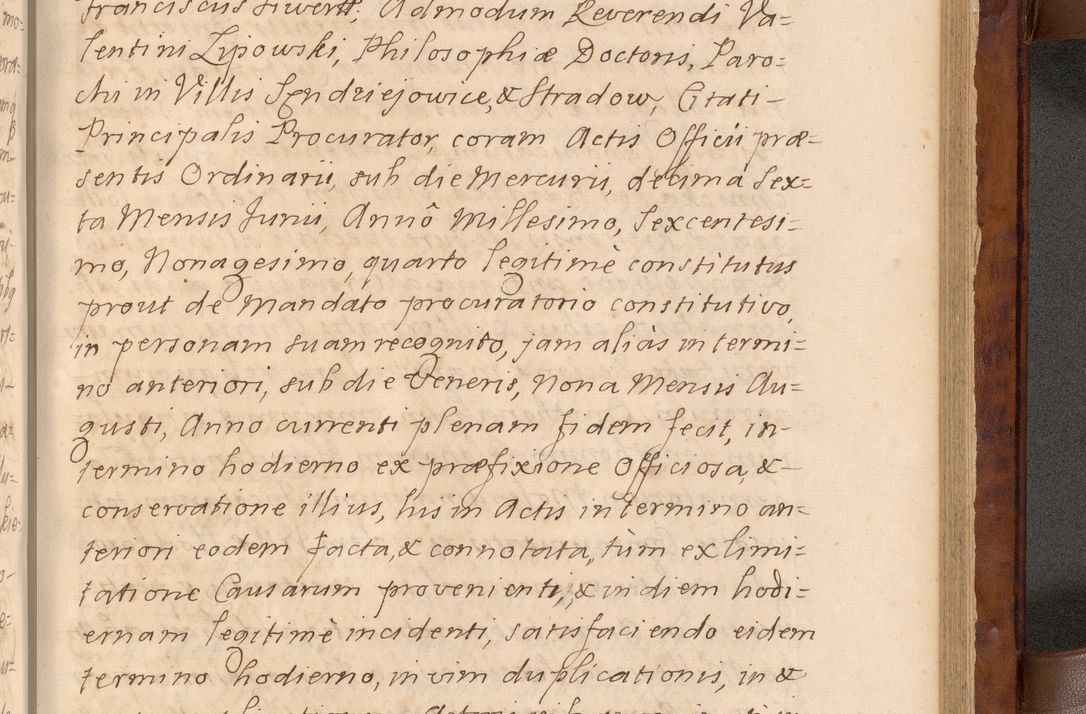 Franciscus Siwertt, Admodum Reverendi Va=
lentini Lipowski, Philosophiæ Doctoris, Paro=
chi in Villis Sendziejowice, & Stradow, Citati-
Principalis Procurator, coram Actis Officii præ=
sentis Ordinarii, sub die Mercurii, decima Sex=
ta Mensis Junii, Annô Millesimo, Sexcentesi=
mo, Nonagesimo, quarto legitimè constitutus
prout de Mandato procuratorio constitutivo,
in personam suam recognito, jam aliàs in termi=
no anteriori, sub die Veneris, Nona Mensis Au=
gusti, Anno currenti plenam fidem fecit, in-
termino hodierno ex præfixione Officiosa, &-
conservatione illius, his in Actis in termino an=
teriori eodem facta, & connotata, tùm ex limi=
tatione Causarum provenienti, & in diem hodi=
ernam legitimè incidenti, satisfaciendo eidem
termino hodierno, in vim duplicationis, in &